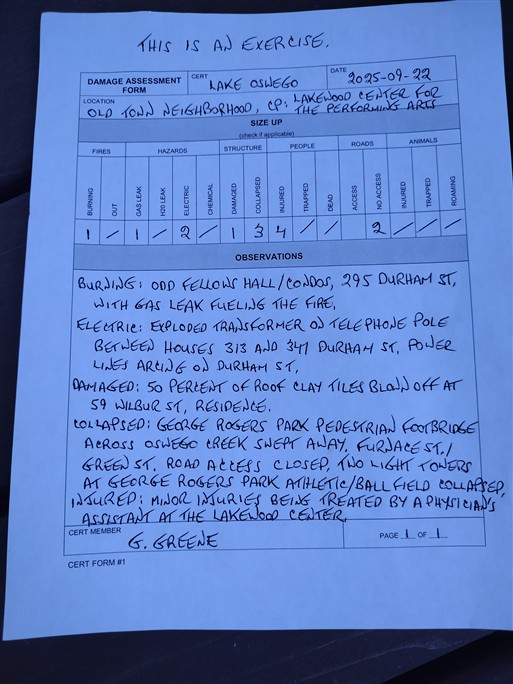 THIS IS AN EXERCISE.
DAMAGE ASSESSMENT FORM
CERT
LAKE OSWEGO
DATE
2025-09-22
LOCATION
OLD TOWN NEIGHBORHOOD, CP: LAKEWOOD CENTER FOR
THE PERFORMING ARTS
SIZE UP
(check if applicable)
FIRES HAZARDS STRUCTURE PEOPLE ROADS ANIMALS
BURNING OUT GAS LEAK H20 LEAK ELECTRIC CHEMICAL DAMAGED COLLAPSED INJURED TRAPPED DEAD ACCESS NO ACCESS INJURED TRAPPED ROAMING
1 / 1 / 2 / 1 3 4 / / 2 / / /
OBSERVATIONS
BURNING: ODD FELLOWS HALL/CONDOS, 295 DURHAM ST,
WITH GAS LEAK FUELING THE FIRE.
ELECTRIC: EXPLODED TRANSFORMER ON TELEPHONE POLE
BETWEEN HOUSES 313 AND 347 DURHAM ST. POWER
LINES ARCING ON DURHAM ST.
DAMAGED: 50 PERCENT OF ROOF CLAY TILES BLOWN OFF AT
59 WILBUR ST, RESIDENCE.
COLLAPSED: GEORGE ROGERS PARK PEDESTRIAN FOOTBRIDGE
ACROSS OSWEGO CREEK SWEPT AWAY. FURNACE ST./
GREEN ST. ROAD ACCESS CLOSED. TWO LIGHT TOWERS
AT GEORGE ROGERS PARK ATHLETIC/BALL FIELD COLLAPSED.
INJURED: MINOR INJURIES BEING TREATED BY A PHYSICIAN'S
ASSISTANT AT THE LAKEWOOD CENTER.
CERT MEMBER
G. GREENE
PAGE 1 OF 1
CERT FORM #1